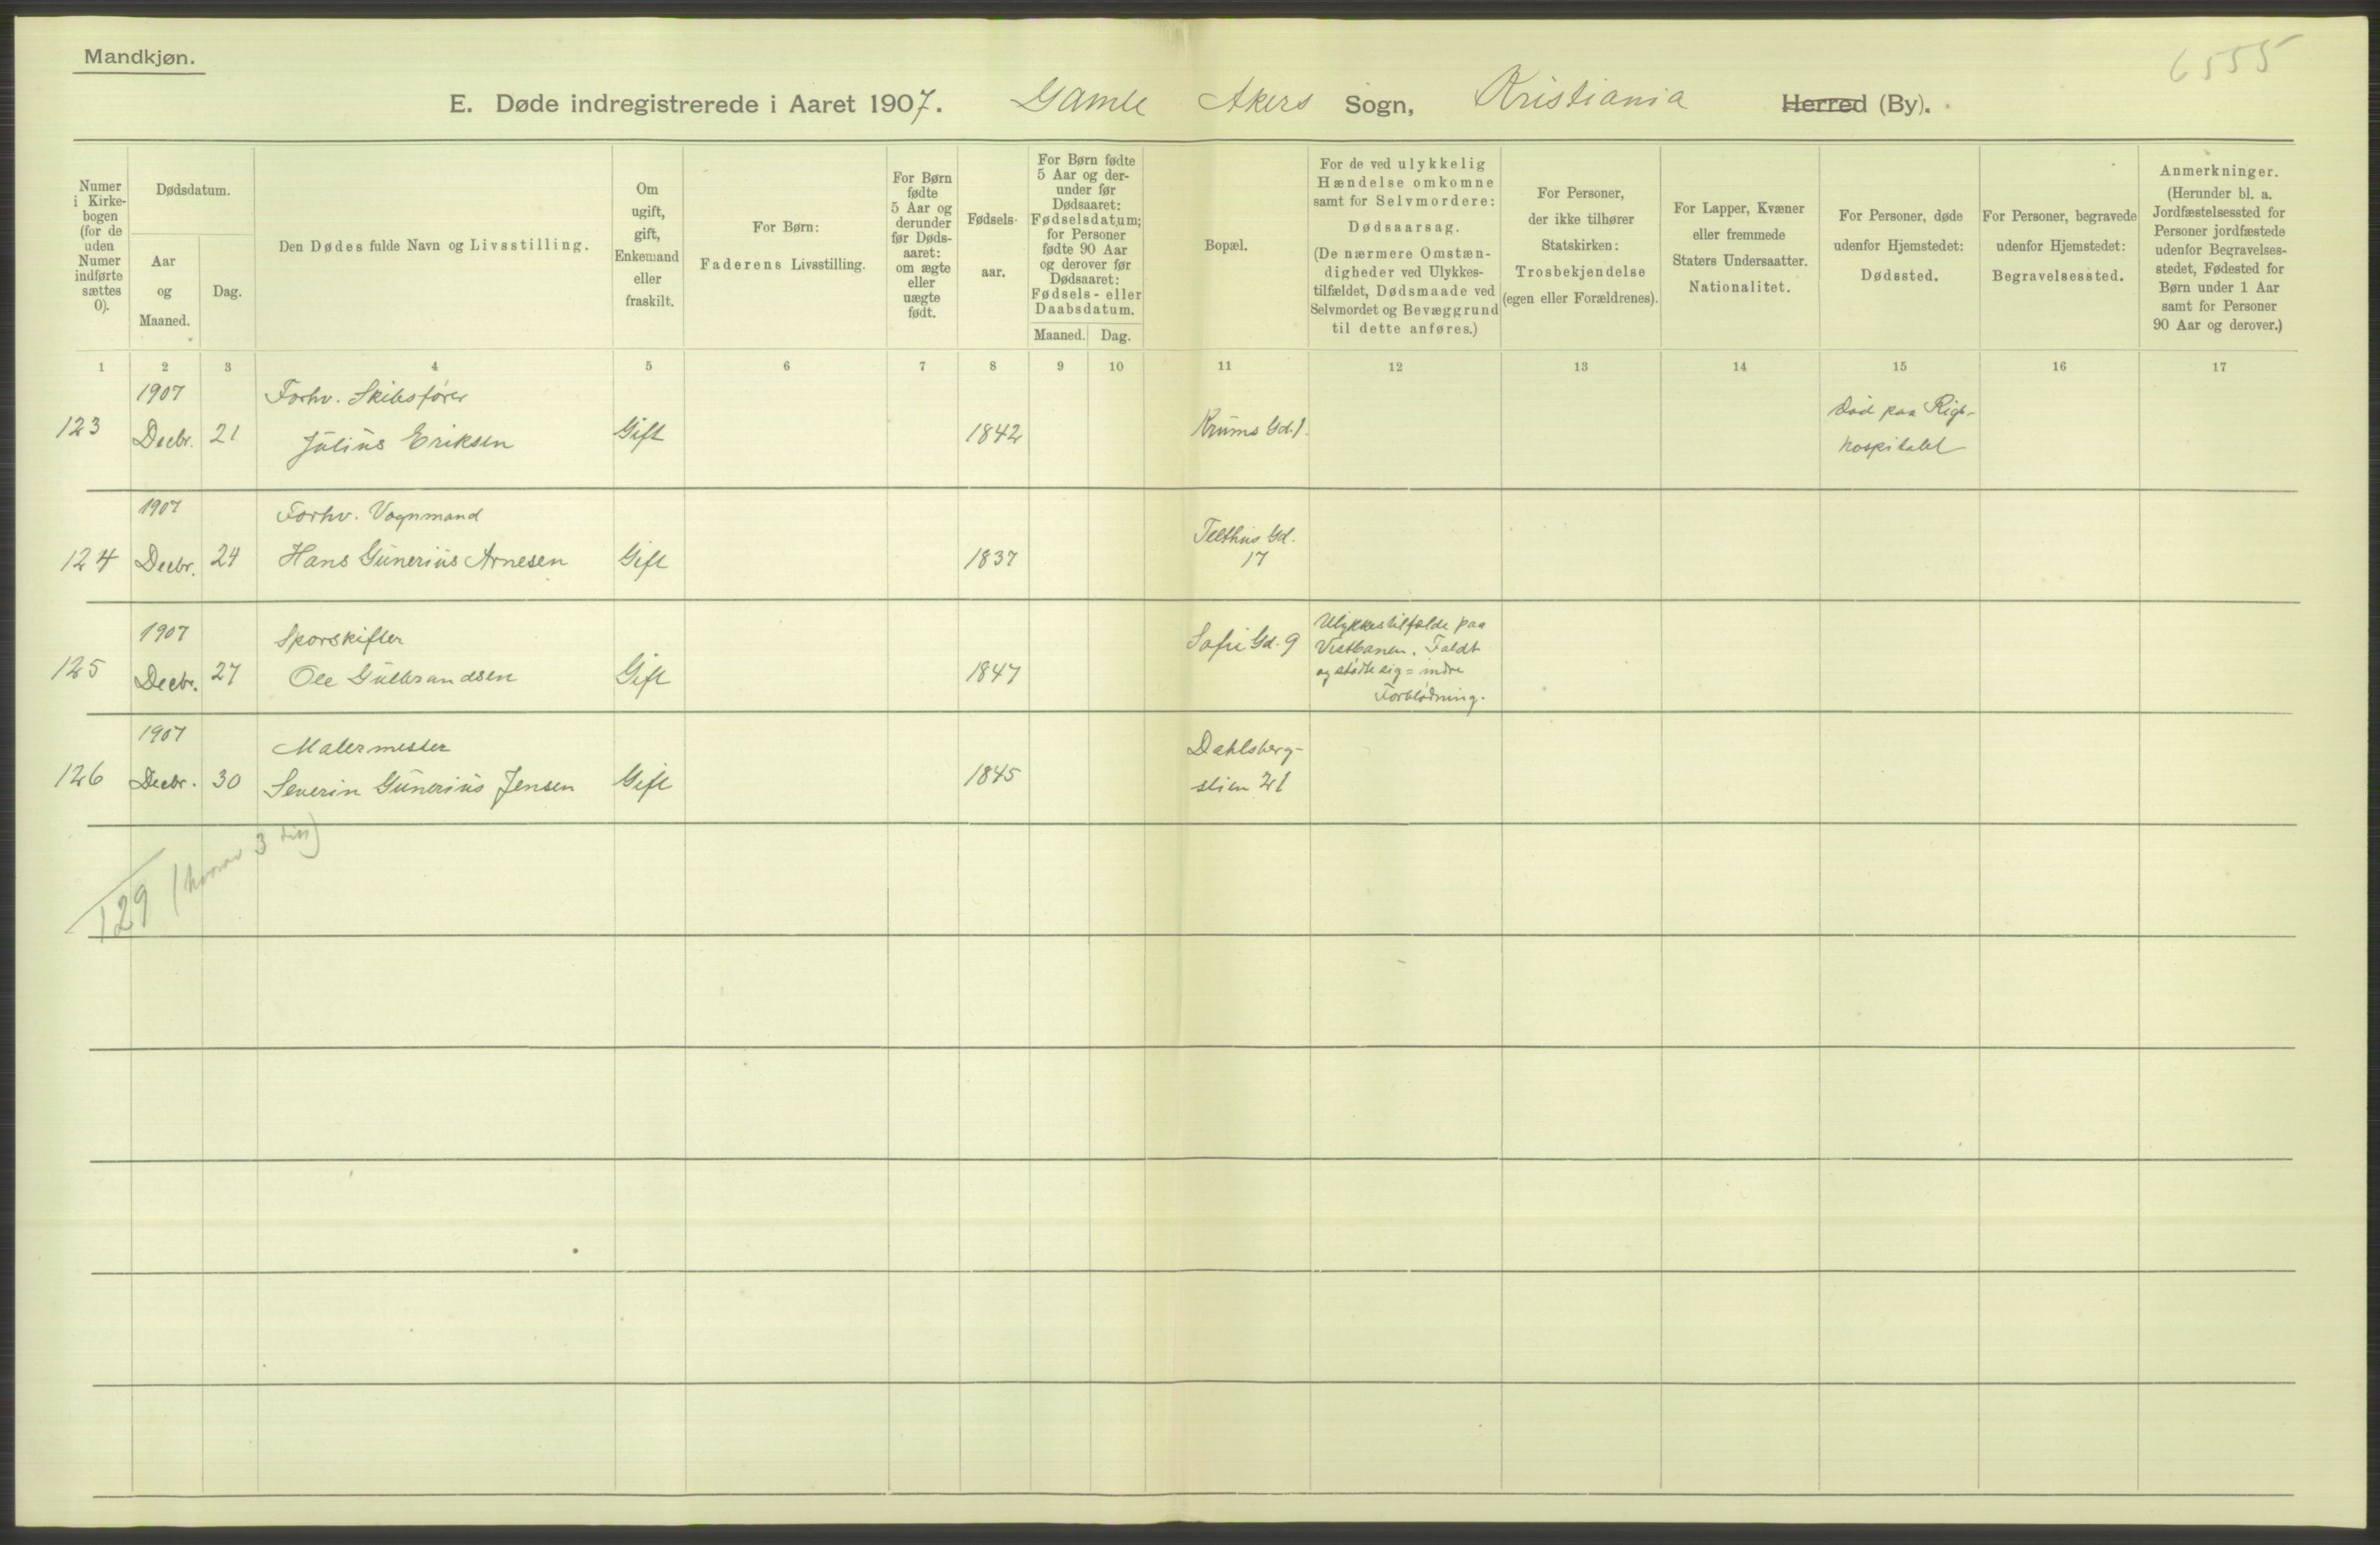 Mandkjøn.
6555
E. Døde indregistrerede i Aaret 1907. Gamle Akers Sogn, Kristiania Herred (By).
Numer
i Kirke-
bogen
(for de
uden
Numer
indførte
sættes
0).
Dødsdatum.
Aar
og
Maaned.
Dag.
Den Dødes fulde Navn og Livsstilling.
Om
ugift,
gift,
Enkemand
eller
fraskilt.
For Børn:
Faderens Livsstilling.
For Børn
fødte
5 Aar og
derunder
før Døds-
aaret:
om ægte
eller
uægte
født.
Fødsels-
aar.
For Børn fødte
5 Aar og der-
under før
Dødsaaret:
Fødselsdatum;
for Personer
fødte 90 Aar
og derover før
Dødsaaret:
Fødsels- eller
Daabsdatum.
Maaned. Dag.
Bopæl.
For de ved ulykkelig
Hændelse omkomne
samt for Selvmordere:
Dødsaarsag.
(De nærmere Omstæn-
digheder ved Ulykkes-
tilfældet, Dødsmaade ved
Selvmordet og Bevæggrund
til dette anføres.)
For Personer,
der ikke tilhører
Statskirken:
Trosbekjendelse
(egen eller Forældrenes).
For Lapper, Kvæner
eller fremmede
Staters Undersaatter.
Nationalitet.
For Personer, døde
udenfor Hjemstedet:
Dødssted.
For Personer, begravede
udenfor Hjemstedet:
Begravelsessted.
Anmerkninger.
(Herunder bl. a.
Jordfæstelsessted for
Personer jordfæstede
udenfor Begravelses-
stedet, Fødested for
Børn under 1 Aar
samt for Personer
90 Aar og derover.)
1 2 3 4 5 6 7 8 9 10 11 12 13 14 15 16 17
1907 Forhv. Skibsfører
123 Decbr. 21 Julius Eriksen Gift 1842 Krums Gd. 1. Død paa Rigs-
hospitalet
1907 Forhv. Vognmand
124 Decbr. 24 Hans Gunerius Arnesen Gift 1837 Telthus Gd.
17
1907 Sporskifter
125 Decbr. 27 Ole Gulbrandsen Gift 1847 Sofie Gd. 9 Ulykkestilfælde paa
Vestbanen. Faldt
og stødte sig = indre
Forblødning.
1907 Malermester
126 Decbr. 30 Severin Gunerius Jensen Gift 1845 Dahlsberg-
stien 21
129 (hvorav 3 )